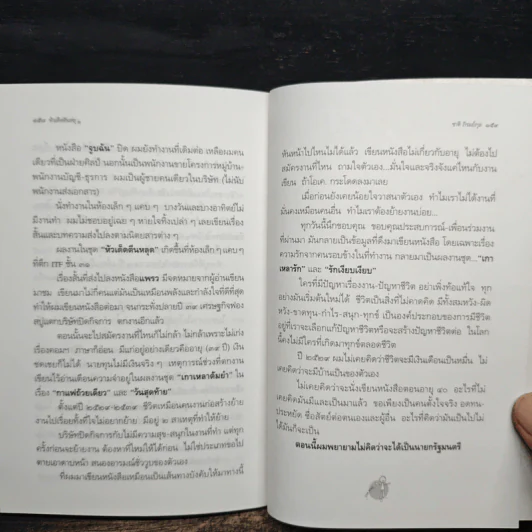 หนังสือ "จูบฉัน" ปิด ผมยังทำงานที่เดิมต่อ เหลือผมคน
เดียวที่เป็นฝ่ายศิลป์ นอกนั้นเป็นพนักงานขายโครงการหมู่บ้าน-
พนักงานบัญชี-ธุรการ ผมเป็นผู้ชายคนเดียวในบริษัท (ไม่นับ
พนักงานส่งเอกสาร)
นั่งทำงานในห้องเล็ก ๆ แคบ ๆ บางวันและบางอาทิตย์ไม่
มีงานทำ ผมไม่ชอบอยู่เฉย ๆ หายใจทิ้งเปล่า ๆ เลยเขียนเรื่อง
สั้นและบทความส่งไปลงตามนิตยสารต่าง ๆ
ผลงานในชุด "หัวเด็ดตีนหลุด" เกิดขึ้นที่ห้องเล็ก ๆ แคบ ๆ
ที่ตึก ITF ชั้น ๓๑
เรื่องสั้นที่ส่งไปลงหนังสือแพรว มีจดหมายจากผู้อ่านเขียน
มาชม เขียนมาไม่กี่คนแต่มันเป็นเหมือนพลังและกำลังใจที่ดีที่สุด
ทำให้ผมเขียนหนังสือต่อมา จนกระทั่งปลายปี ๓๙ เศรษฐกิจฟอง
สบู่แตกบริษัทปิดกิจการ ตกงานอีกแล้ว
ตอนนั้นจะไปสมัครงานที่ไหนก็ไม่กล้า ไม่กล้าเพราะไม่เก่ง
เรื่องคอมฯ ภาษาก็อ่อน มีแก่อยู่อย่างเดียวคืออายุ (๓๙ ปี) เงิน
เก็บก็ไม่มีสักบาท นายทุนไม่มีเงินจริง ๆ เหตุการณ์ช่วงที่ตกงาน
เขียนไว้อ่านเตือนความจำอยู่ในผลงานชุด "เกาเหลาต้มยำ" ใน
เรื่อง "กาแฟถ้วยเดียว" และ "วันสุดท้าย"
ตั้งแต่ปี ๒๕๒๙-๒๕๓๙ ชีวิตเหมือนคนงานก่อสร้างย้าย
งานไปเรื่อยทั้งที่ใจไม่อยากย้าย มีอยู่ ๒ สาเหตุที่ทำให้ย้าย
บริษัทปิดกิจการกับไม่มีความสุข-สนุกในงานที่ทำ แต่ทุก
ครั้งก่อนจะย้ายงาน ต้องหาที่ใหม่ให้ได้ก่อน ไม่ใช่ประเภทขอไป
ตายเอาดาบหน้า สนองอารมณ์ชั่ววูบของตัวเอง
ที่ผมมาเขียนหนังสือเหมือนเป็นเส้นทางบังคับให้มาทางนี้
ชาติ ภิรมย์กุล
หันหน้าไปไหนไม่ได้แล้ว เขียนหนังสือไม่เกี่ยวกับอายุ ไม่ต้องไป
สมัครงานที่ไหน ถามใจตัวเอง...มั่นใจและจริงจังแค่ไหนกับงาน
เขียน ถ้าโอเค กระโดดลงมาเลย
เมื่อก่อนยังเคยน้อยใจวาสนาตัวเอง ทำไมเราไม่ได้งานที่
มั่นคงเหมือนคนอื่น ทำไมเราต้องย้ายงานบ่อย...
ทุกวันนี้นึกขอบคุณ ขอบคุณประสบการณ์-เพื่อนร่วมงาน
ที่ผ่านมา มันกลายเป็นข้อมูลที่ดึงมาเขียนหนังสือ โดยเฉพาะเรื่อง
ความรักจากคนรอบข้างในที่ทำงาน กลายมาเป็นผลงานชุด..."เกา
เหลารัก" และ "รักเงียบเงียบ"
ใครที่มีปัญหาเรื่องงาน-ปัญหาชีวิต อย่าเพิ่งท้อแท้ใจ ทุก
อย่างมันเริ่มต้นใหม่ได้ ชีวิตเป็นสิ่งที่ไม่คาดคิด มีทั้งสมหวัง-ผิด
หวัง-ขาดทุน-กำไร-สนุก-ทุกข์ เป็นองค์ประกอบของการมีชีวิต
อยู่ที่เราจะเลือกแก้ปัญหาชีวิตหรือจะสร้างปัญหาชีวิตต่อ ในโลก
นี้คงไม่มีใครที่เกิดมาทุกข์ตลอดชีวิต
ปี ๒๕๒๙ ผมไม่เคยคิดว่าชีวิตจะมีเงินเดือนเป็นหมื่น ไม่
เคยคิดว่าจะมีบ้านเป็นของตัวเอง
ไม่เคยคิดว่าจะนั่งเขียนหนังสือตอนอายุ ๔๐ อะไรที่ไม่
เคยคิดมันมีและเป็นมาแล้ว ขอเพียงเป็นคนตั้งใจจริง อดทน-
ประหยัด ซื่อสัตย์ต่อตนเองและผู้อื่น อะไรที่คิดว่าเป็นไปไม่
ได้มันก็จะเป็น
ตอนนี้ผมพยายามไม่คิดว่าจะได้เป็นนายกรัฐมนตรี